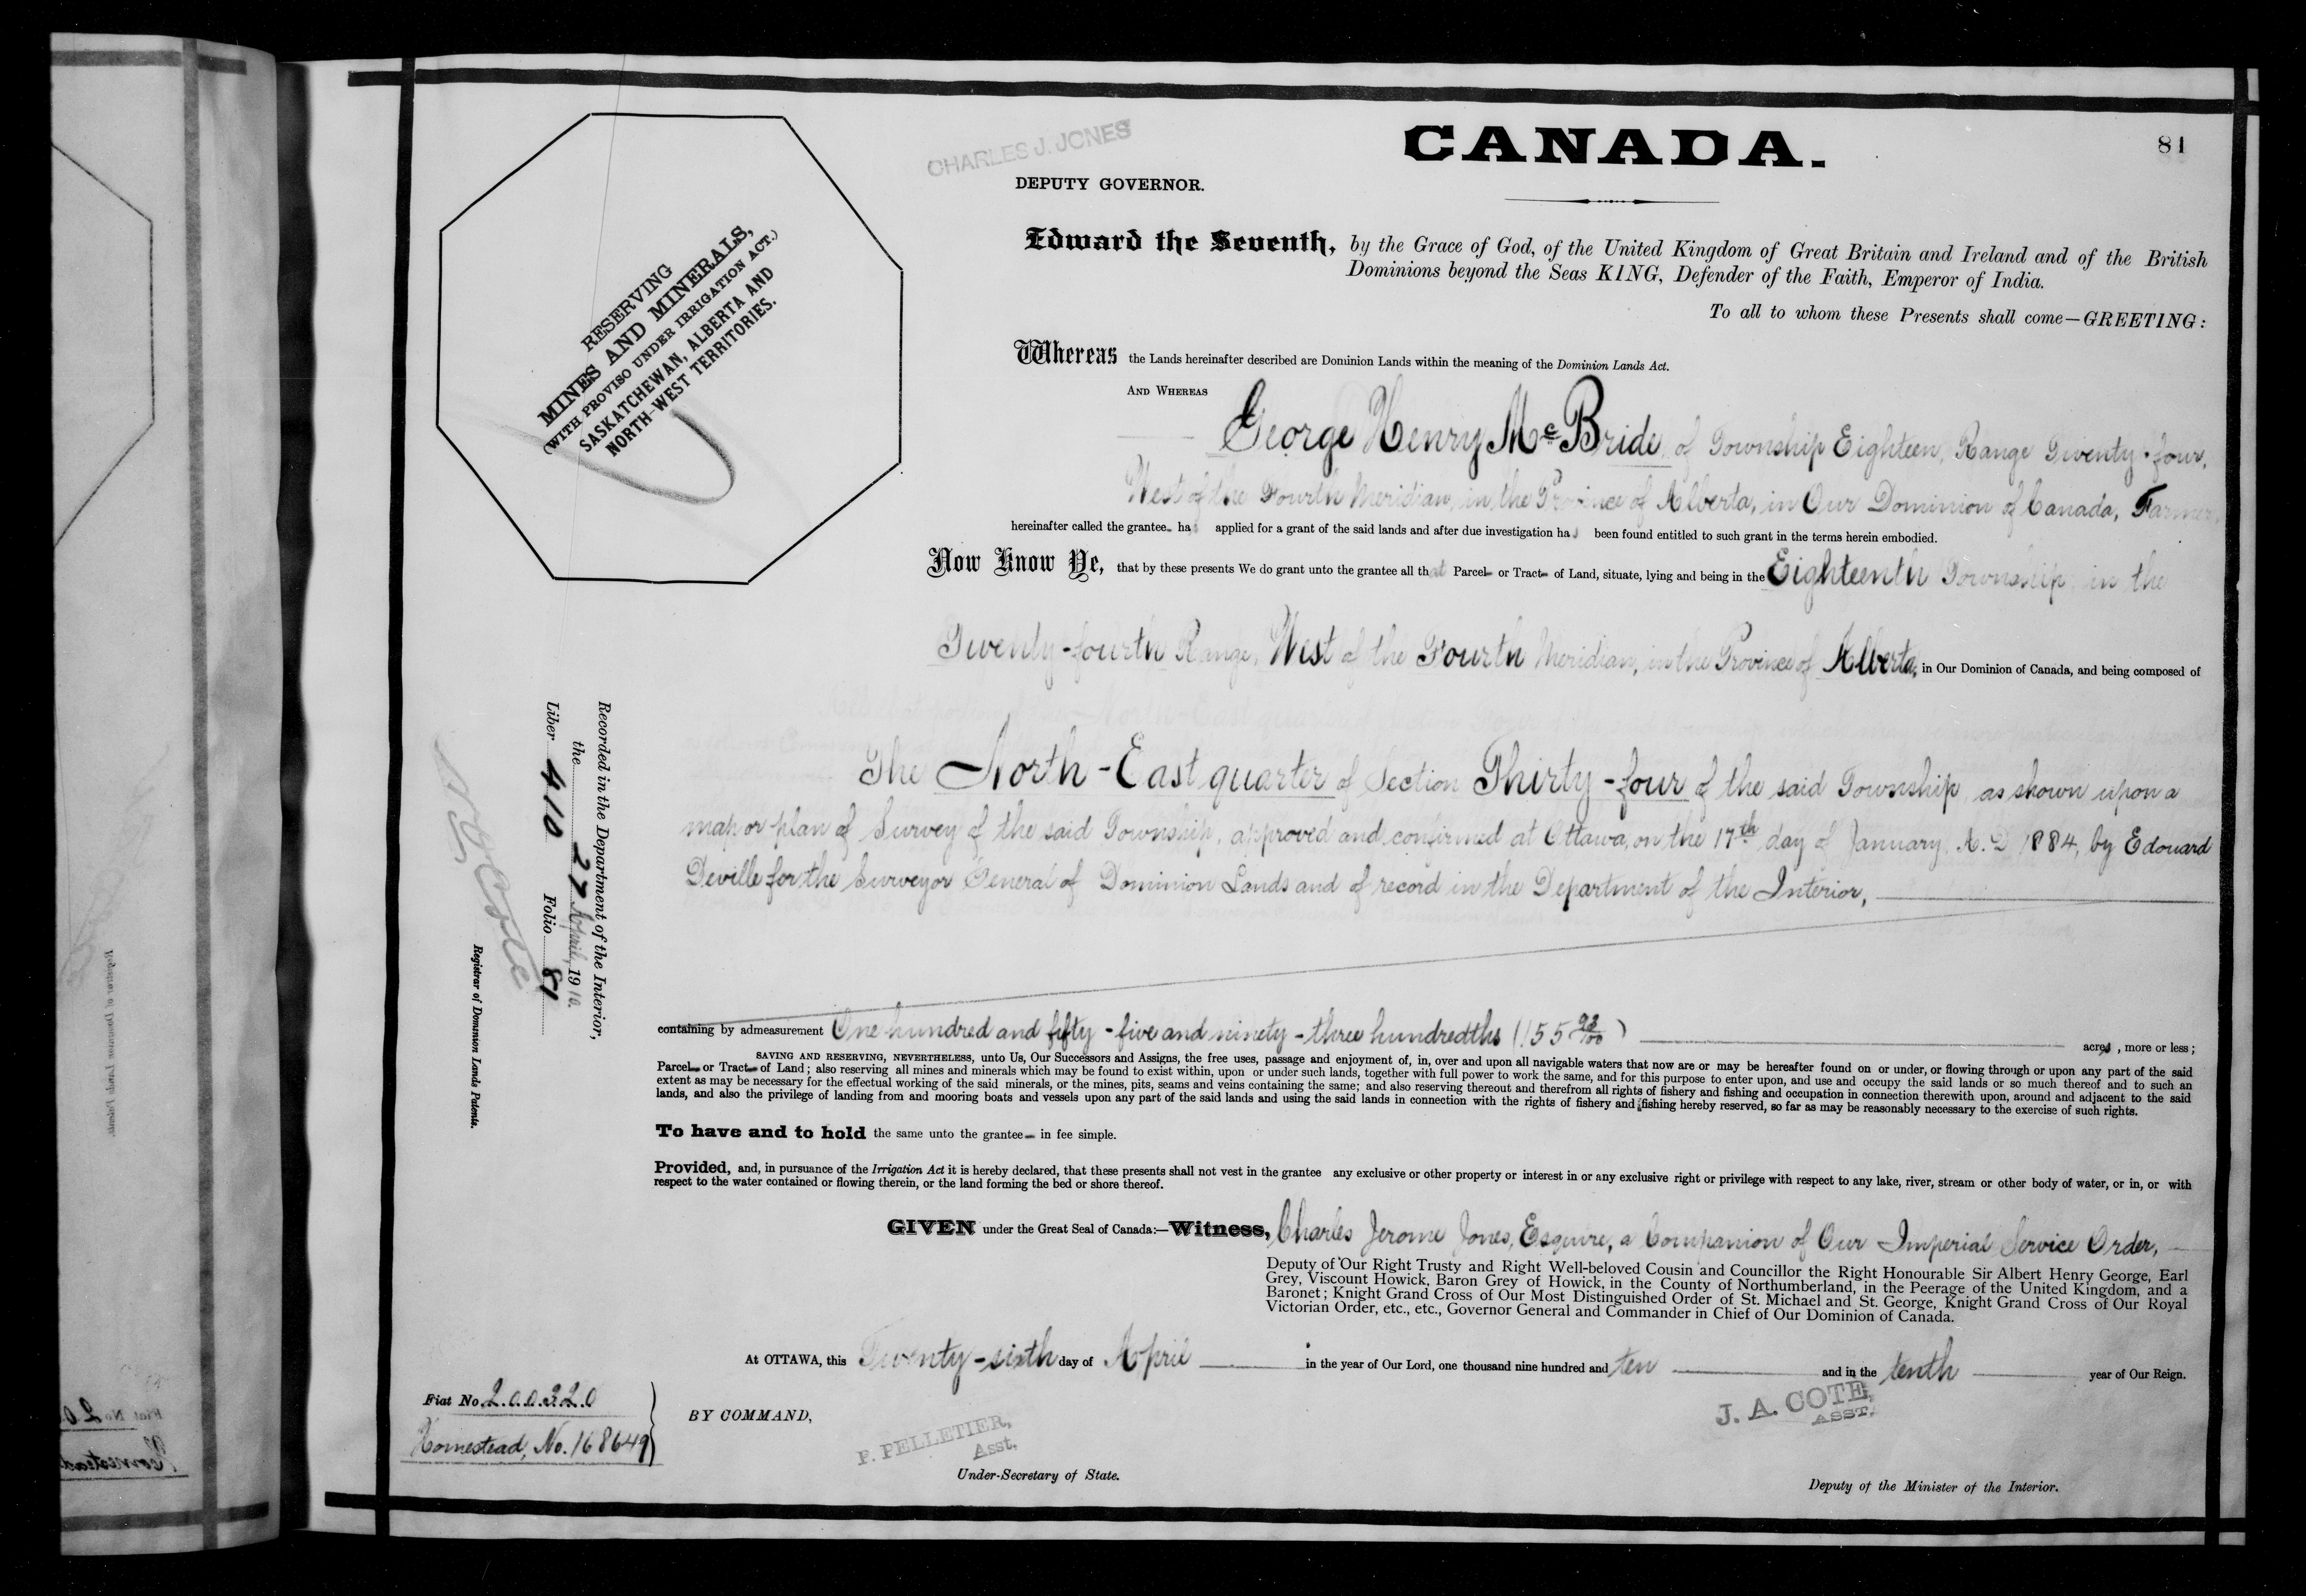 81
CHARLES J. JONES
DEPUTY GOVERNOR.
CANADA.
RESERVING
MINES AND MINERALS,
(WITH PROVISO UNDER IRRIGATION ACT.)
SASKATCHEWAN, ALBERTA AND
NORTH-WEST TERRITORIES.
Edward the Seventh, by the Grace of God, of the United Kingdom of Great Britain and Ireland and of the British
Dominions beyond the Seas KING, Defender of the Faith, Emperor of India.
To all to whom these Presents shall come—GREETING:
Whereas the Lands hereinafter described are Dominion Lands within the meaning of the Dominion Lands Act.
AND WHEREAS
George Henry McBride, of Township Eighteen, Range Twenty-four,
West of the Fourth Meridian, in the Province of Alberta, in Our Dominion of Canada, Farmer,
hereinafter called the grantee has applied for a grant of the said lands and after due investigation has been found entitled to such grant in the terms herein embodied.
Now Know Ye, that by these presents We do grant unto the grantee all that Parcel or Tract of Land, situate, lying and being in the Eighteenth Township, in the
Twenty-fourth Range, West of the Fourth Meridian, in the Province of Alberta, in Our Dominion of Canada, and being composed of
The North-East quarter of Section Thirty-four of the said Township, as shown upon a
map or plan of Survey of the said Township, approved and confirmed at Ottawa, on the 17th day of January, A.D 1884, by Edouard
Deville for the Surveyor General of Dominion Lands and of record in the Department of the Interior,
containing by admeasurement One hundred and fifty-five and ninety-three hundredths (155 93/100) acres, more or less;
SAVING AND RESERVING, NEVERTHELESS, unto Us, Our Successors and Assigns, the free uses, passage and enjoyment of, in, over and upon all navigable waters that now are or may be hereafter found on or under, or flowing through or upon any part of the said
Parcel or Tract of Land; also reserving all mines and minerals which may be found to exist within, upon or under such lands, together with full power to work the same, and for this purpose to enter upon, and use and occupy the said lands or so much thereof and to such an
extent as may be necessary for the effectual working of the said minerals, or the mines, pits, seams and veins containing the same; and also reserving thereout and therefrom all rights of fishery and fishing and occupation in connection therewith upon, around and adjacent to the said
lands, and also the privilege of landing from and mooring boats and vessels upon any part of the said lands and using the said lands in connection with the rights of fishery and fishing hereby reserved, so far as may be reasonably necessary to the exercise of such rights.
To have and to hold the same unto the grantee in fee simple.
Provided, and, in pursuance of the Irrigation Act it is hereby declared, that these presents shall not vest in the grantee any exclusive or other property or interest in or any exclusive right or privilege with respect to any lake, river, stream or other body of water, or in, or with
respect to the water contained or flowing therein, or the land forming the bed or shore thereof.
GIVEN under the Great Seal of Canada:—Witness, Charles Jerome Jones, Esquire, a Companion of Our Imperial Service Order,
Deputy of Our Right Trusty and Right Well-beloved Cousin and Councillor the Right Honourable Sir Albert Henry George, Earl
Grey, Viscount Howick, Baron Grey of Howick, in the County of Northumberland, in the Peerage of the United Kingdom, and a
Baronet; Knight Grand Cross of Our Most Distinguished Order of St. Michael and St. George, Knight Grand Cross of Our Royal
Victorian Order, etc., etc., Governor General and Commander in Chief of Our Dominion of Canada.
At OTTAWA, this Twenty-sixth day of April in the year of Our Lord, one thousand nine hundred and ten and in the tenth year of Our Reign.
Fiat No. 200320
Homestead, No. 168649
BY COMMAND,
F. PELLETIER,
Asst.
Under-Secretary of State.
J. A. COTE,
ASST.
Deputy of the Minister of the Interior.
Recorded in the Department of the Interior,
the 27 April, 1910.
Liber 410 Folio 81
Registrar of Dominion Lands Patents.